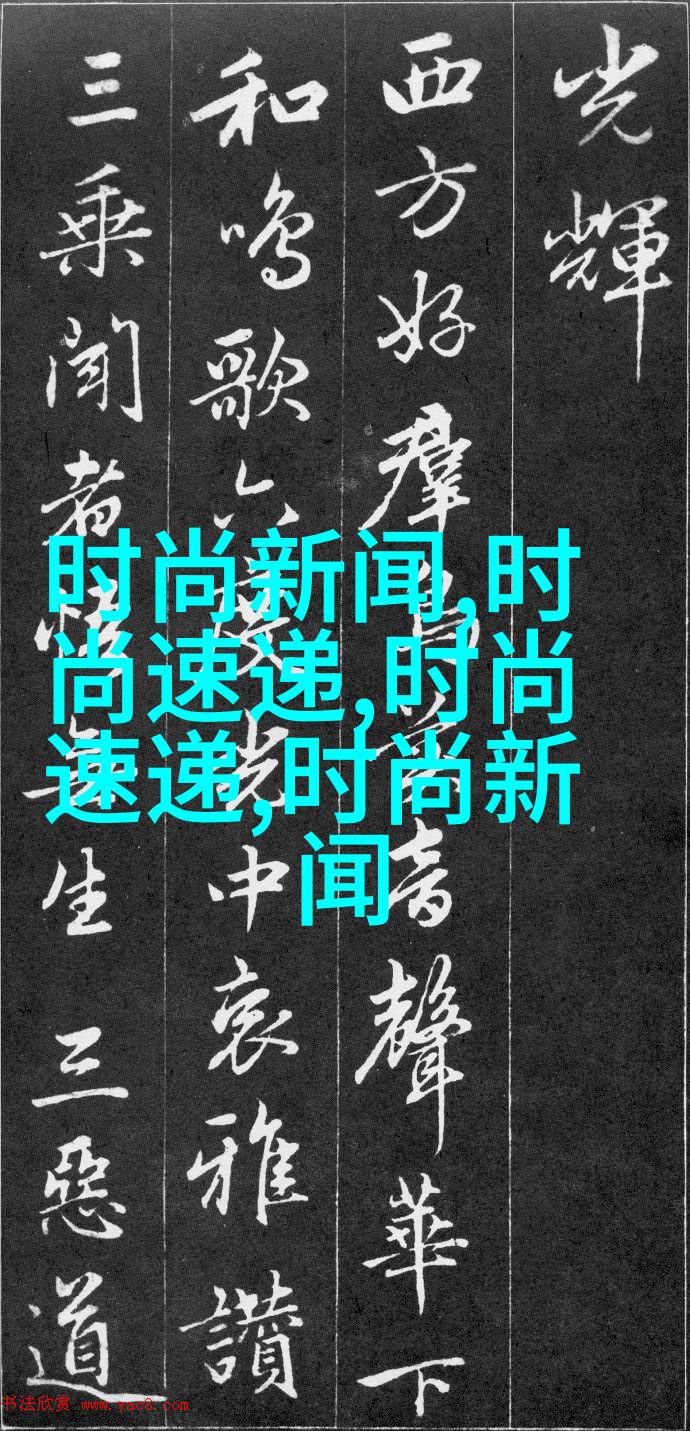 光輝
西方好群鳥美音聲華下
和鳴歌六度光中哀雅讚
三乘聞者悟無生 三惡道
时尚新闻,时
尚速递,时尚
速递,时尚新
闻
书法欣赏 www.yac8.com